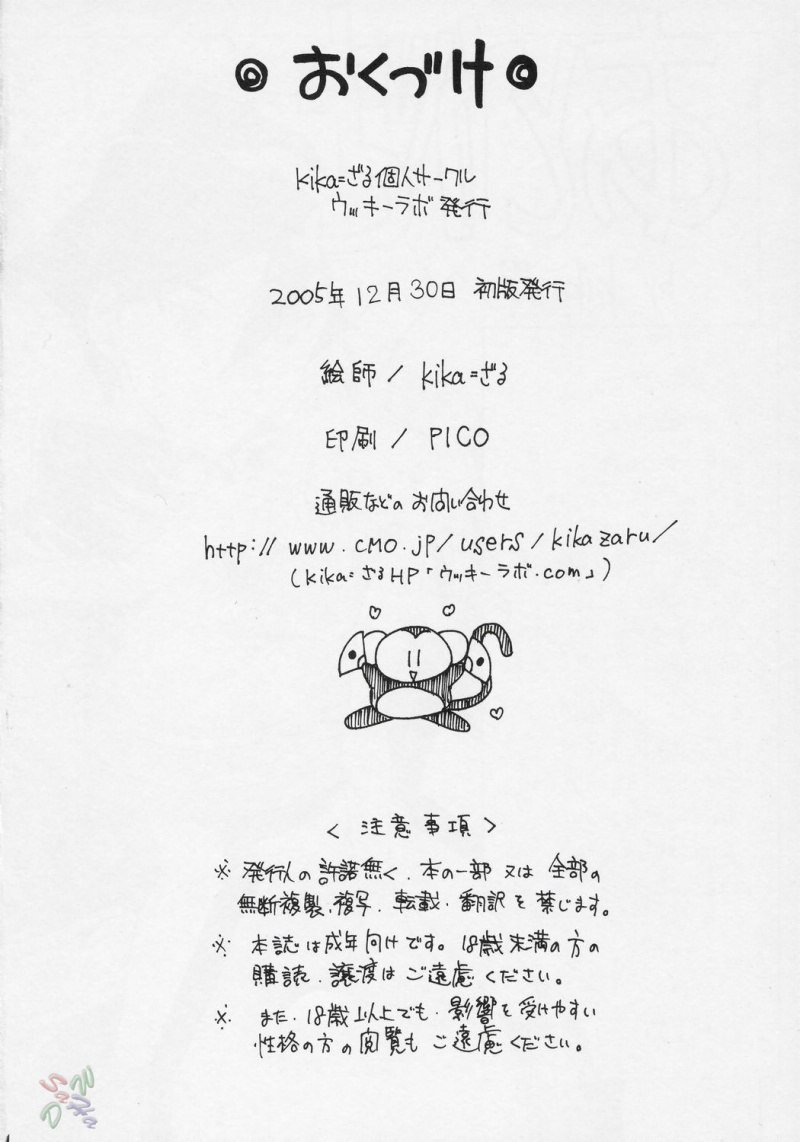 おくづけ
kika=ざる個人サークル
ウッキーラボ発行
2005年12月30日 初版発行
絵師 / kika=ざる
印刷 / PICO
通販などの お問い合わせ
http://www.cmo.jp/users/kikazaru/
(kika=ざるHP「ウッキーラボ.com」)
< 注意事項 >
※ 発行人の許諾無く、本の一部 又は 全部の
無断複製、複写、転載・翻訳を禁じます。
※ 本誌は成年向けです。18歳未満の方の
購読、譲渡はご遠慮ください。
※ また、18歳以上でも、影響を受けやすい
性格の方の閲覧もご遠慮ください。